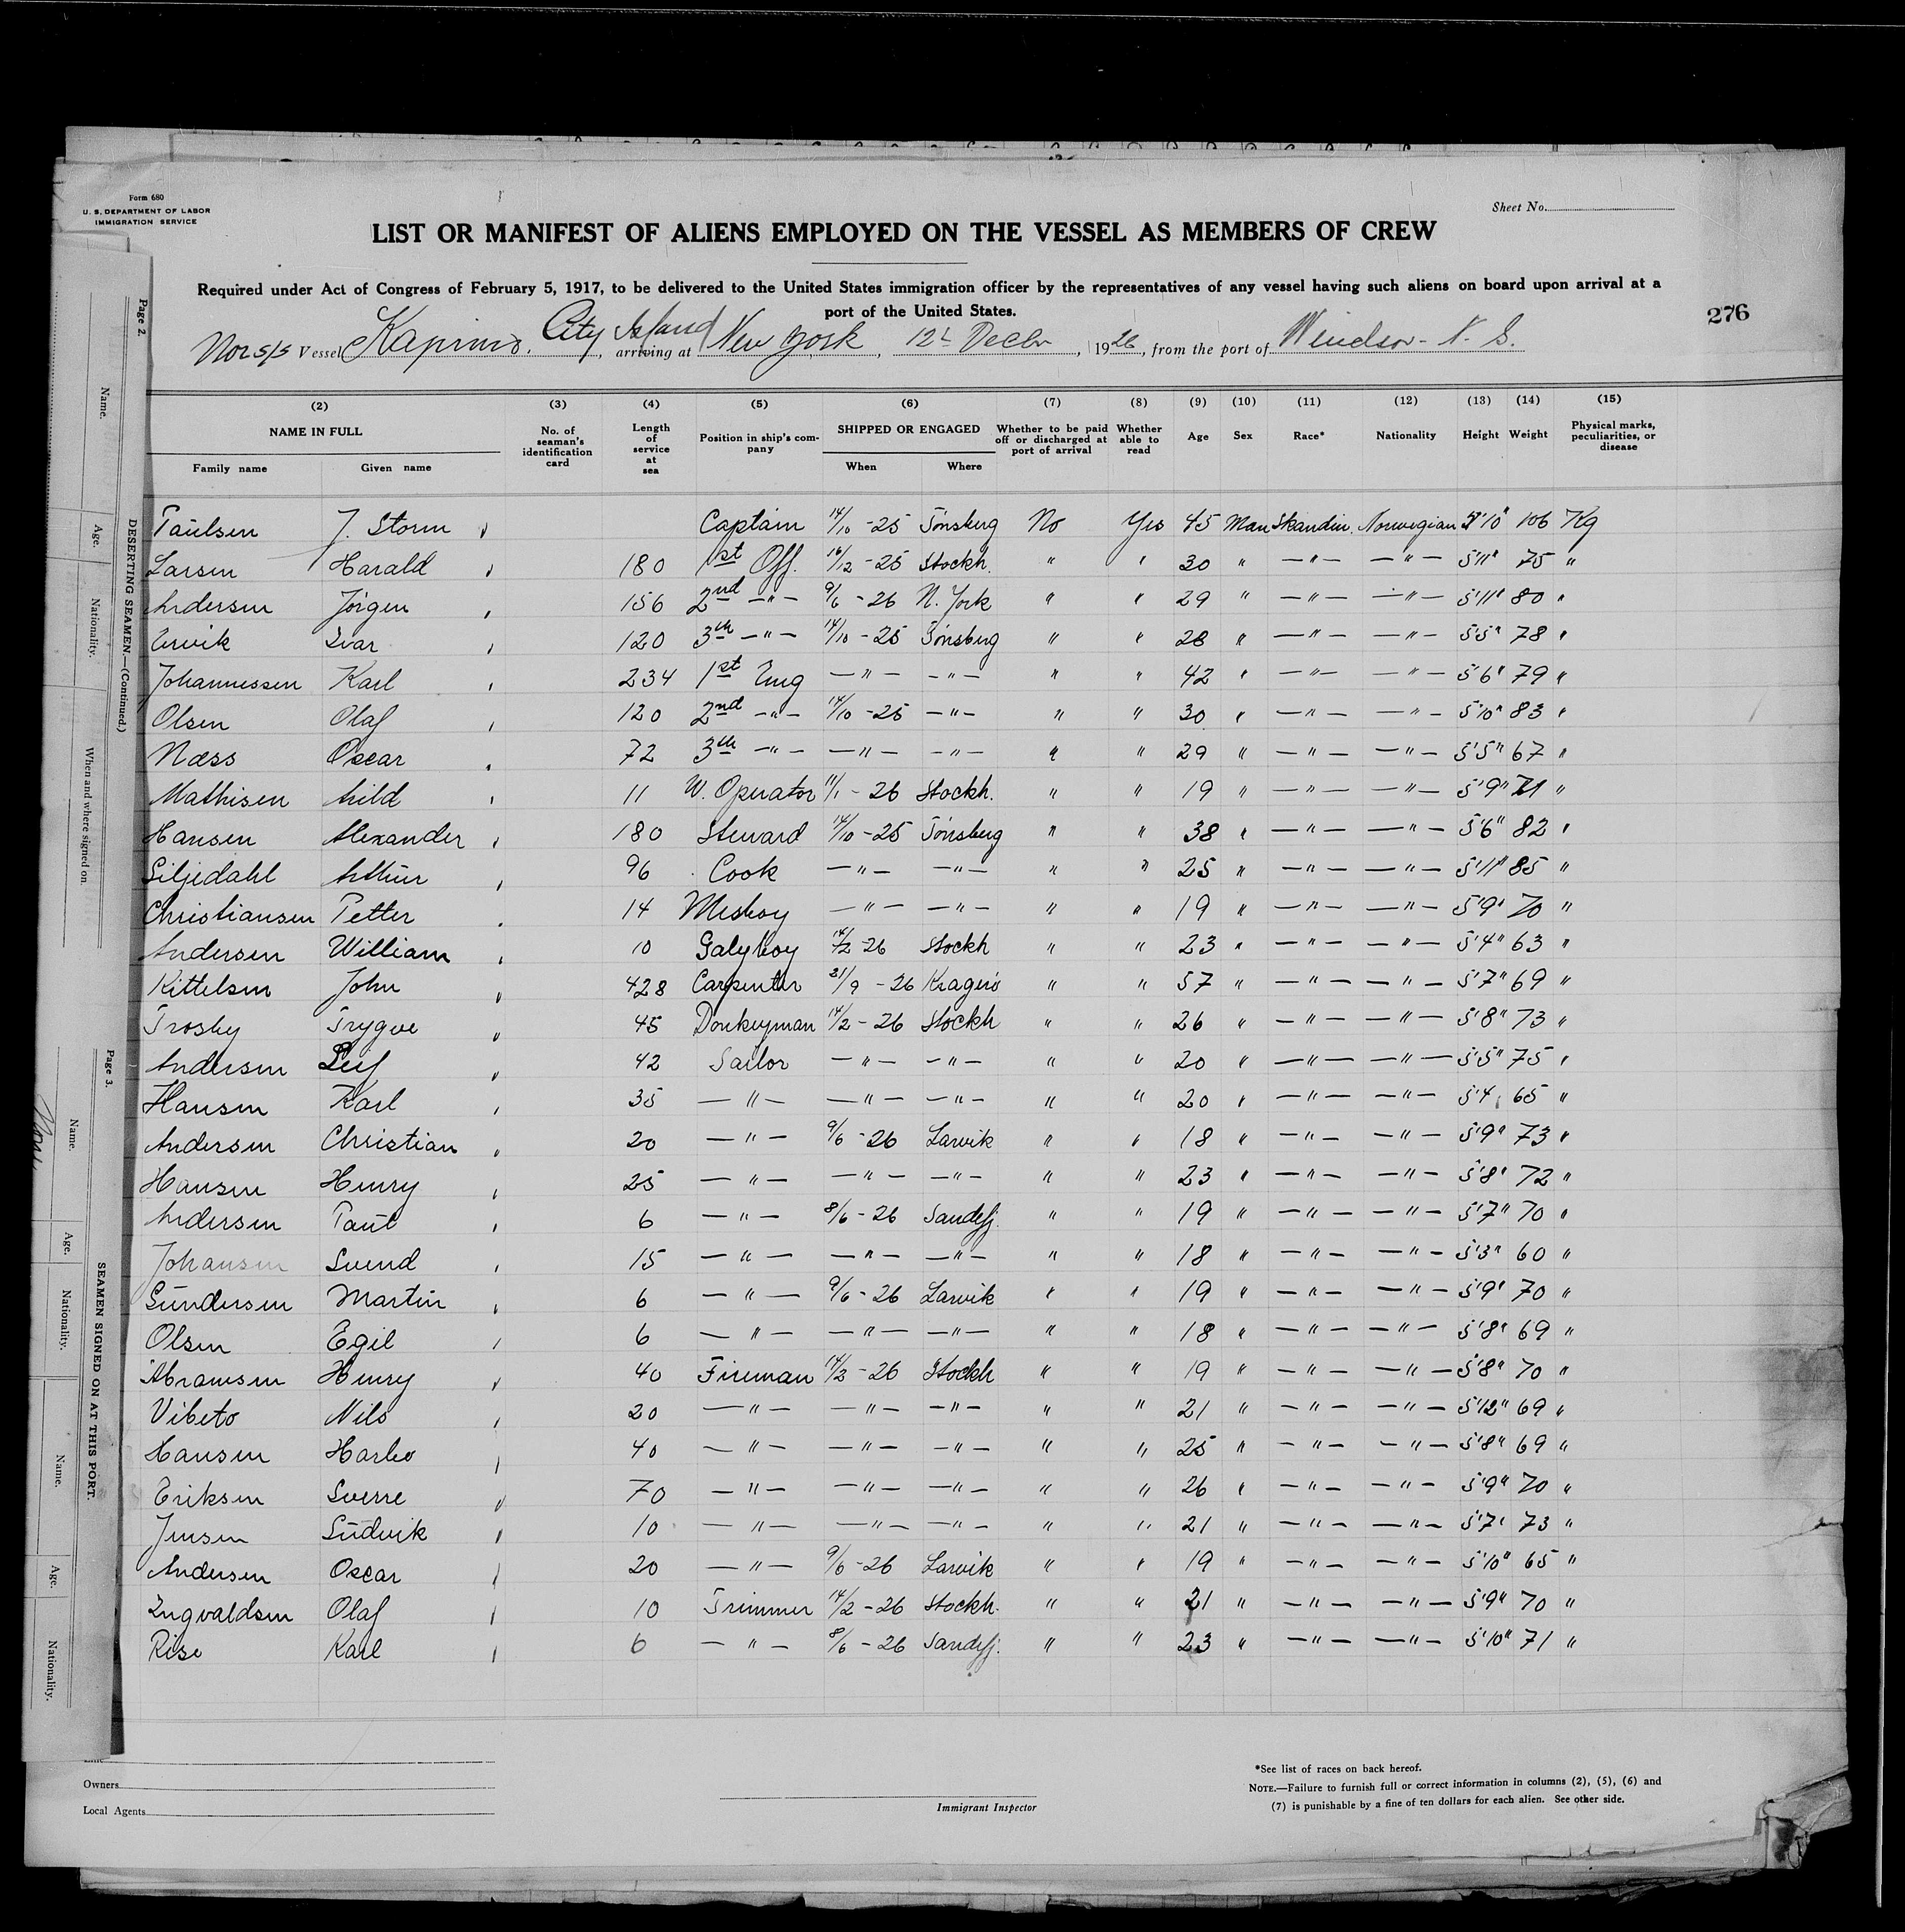 Form 680
U. S. DEPARTMENT OF LABOR
IMMIGRATION SERVICE
Sheet No.
LIST OR MANIFEST OF ALIENS EMPLOYED ON THE VESSEL AS MEMBERS OF CREW
Required under Act of Congress of February 5, 1917, to be delivered to the United States immigration officer by the representatives of any vessel having such aliens on board upon arrival at a
port of the United States.
276
Nor s/s Vessel City Island, arriving at New York, 12 Decbr, 1926, from the port of Windsor - N. S.
(2) (3) (4) (5) (6) (7) (8) (9) (10) (11) (12) (13) (14) (15)
NAME IN FULL No. of seaman's identification card Length of service at sea Position in ship's company SHIPPED OR ENGAGED Whether to be paid off or discharged at port of arrival Whether able to read Age Sex Race* Nationality Height Weight Physical marks, peculiarities, or disease
Family name Given name When Where
Paulsen J. Storm Captain 14/10 -25 Tönsberg No Yes 45 Man Skandin. Norwegian 5'10" 106 Kg
Larsen Harald 180 1st Off. 16/12 -25 Stockh. " " 30 " —"— —"— 5'11" 75 "
Andersen Jörgen 156 2nd —"— 9/6 -26 N. York " " 29 " —"— —"— 5'11" 80 "
Ivar 120 3th —"— 14/10 -25 Tönsberg " " 28 " —"— —"— 5'5" 78 "
Johannessen Karl 234 1st Eng —"— —"— " " 42 " —"— —"— 5'6" 79 "
Olsen Olaf 120 2nd —"— 14/10 -25 —"— " " 30 " —"— —"— 5'10" 83 "
Næss Oscar 72 3th —"— —"— —"— " " 29 " —"— —"— 5'5" 67 "
Mathisen Arild 11 W. Operator 11/1 - 26 Stockh. " " 19 " —"— —"— 5'9" 71 "
Hansen Alexander 180 Steward 14/10 -25 Tönsberg " " 38 " —"— —"— 5'6" 82 "
Siljedahl Arthur 96 Cook —"— —"— " " 25 " —"— —"— 5'11" 85 "
Christiansen Petter 14 Mesboy —"— —"— " " 19 " —"— —"— 5'9" 70 "
Andersen William 10 Galyboy 14/2 -26 Stockh " " 23 " —"— —"— 5'4" 63 "
Kittelsen John 428 Carpenter 21/9 - 26 Kragerö " " 57 " —"— —"— 5'7" 69 "
Trosby Trygve 45 Donkeyman 14/2 - 26 Stockh " " 26 " —"— —"— 5'8" 73 "
Andersen Leif 42 Sailor —"— —"— " " 20 " —"— —"— 5'5" 75 "
Hansen Karl 35 —"— —"— —"— " " 20 " —"— —"— 5'4 65 "
Andersen Christian 20 —"— 9/6 -26 Larvik " " 18 " —"— —"— 5'9" 73 "
Hansen Henry 25 —"— —"— —"— " " 23 " —"— —"— 5'8" 72 "
Andersen Paul 6 —"— 8/6 - 26 Sandefj. " " 19 " —"— —"— 5'7" 70 "
Johansen Svend 15 —"— —"— —"— " " 18 " —"— —"— 5'3" 60 "
Gundersen Martin 6 —"— 9/6 - 26 Larvik " " 19 " —"— —"— 5'9" 70 "
Olsen Egil 6 —"— —"— —"— " " 18 " —"— —"— 5'8" 69 "
Abramsen Henry 40 Fireman 14/2 -26 Stockh " " 19 " —"— —"— 5'8" 70 "
Vibeto Nils 20 —"— —"— —"— " " 21 " —"— —"— 5'12" 69 "
Hansen 40 —"— —"— —"— " " 25 " —"— —"— 5'8" 69 "
Eriksen Sverre 70 —"— —"— —"— " " 26 " —"— —"— 5'9" 70 "
Jensen Ludvik 10 —"— —"— —"— " " 21 " —"— —"— 5'7" 73 "
Andersen Oscar 20 —"— 9/6 -26 Larvik " " 19 " —"— —"— 5'10" 65 "
Ingvaldsen Olaf 10 Trimmer 14/2 - 26 Stockh. " " 21 " —"— —"— 5'9" 70 "
Rise Karl 6 —"— 8/6 - 26 Sandefj. " " 23 " —"— —"— 5'10" 71 "
Owners
Local Agents
Immigrant Inspector
*See list of races on back hereof.
NOTE.—Failure to furnish full or correct information in columns (2), (5), (6) and
(7) is punishable by a fine of ten dollars for each alien. See other side.
Page 2.
DESERTING SEAMEN.—(Continued.)
Name.
Age.
Nationality.
When and where signed on.
Page 3.
SEAMEN SIGNED ON AT THIS PORT.
Name.
Age.
Nationality.
Name.
Age.
Nationality.